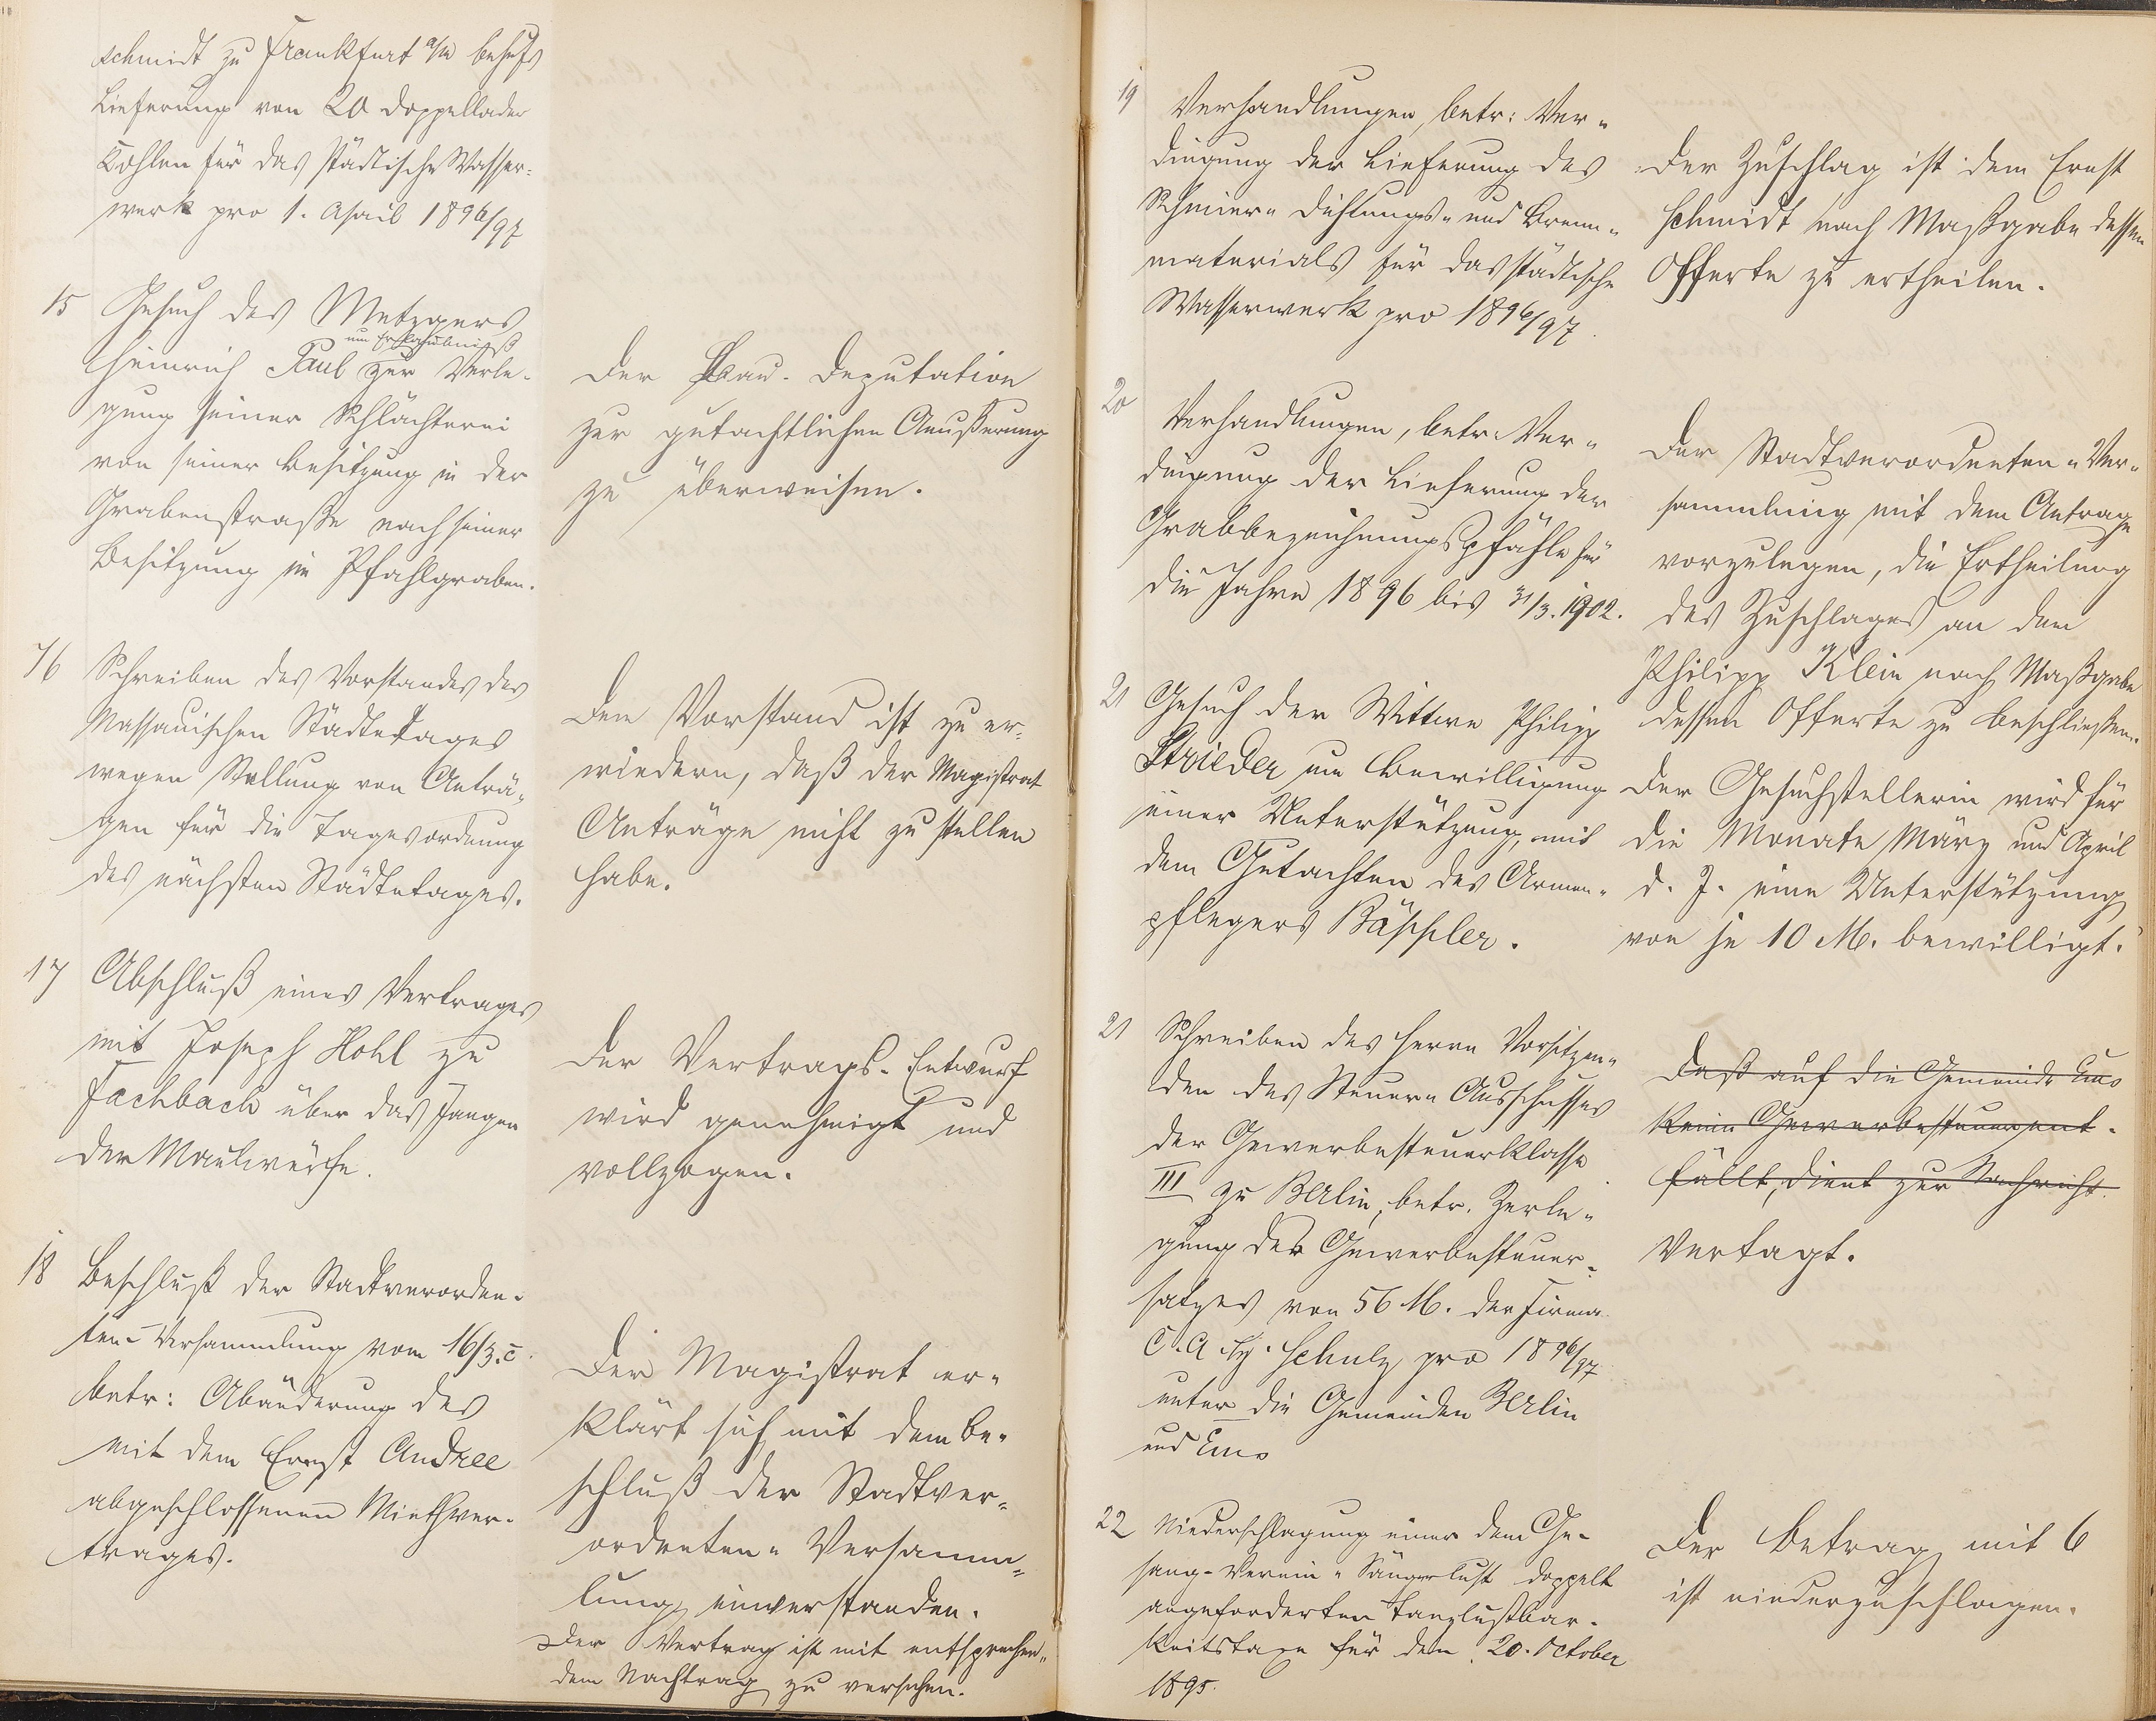 schmidt zu Frankfurt a/M behufs
Lieferung von 20 Doppellader
Kohlen für das städtische Wasser-
werk pro 1. April 1896/97
15 Gesuch des Metzgers
um Erlaubniß
Heinrich Paul zur Verle-
gung seiner Schlächterei
von seiner Besitzung in der
Grabenstraße nach seiner
Besitzung im Pfahlgraben.
Der Bau-Deputation
zur gutachtlichen Aeußerung
zu überweisen.
16 Schreiben des Vorstandes des
Nassauischen Städtetages
wegen Stellung von Anträ-
gen für die Tagesordnung
des nächsten Städtetages.
Dem Vorstand ist zu er-
wiedern, daß der Magistrat
Anträge nicht zu stellen
habe.
17 Abschluß eines Vertrages
mit Joseph Hohl zu
Fachbach über das Fangen
der Maulwürfe.
Der Vertrags-Entwurf
wird genehmigt und
vollzogen.
18 Beschluß der Stadtverordne-
ten-Versammlung vom 16/3. c.
betr: Abänderung des
mit dem Ernst Andree
abgeschlossenen Miethver-
trages.
Der Magistrat er-
klärt sich mit dem Be-
schluß der Stadtver-
ordneten-Versamm-
lung einverstanden.
Der Vertrag ist mit entsprechen-
dem Nachtrag zu versehen.
19 Verhandlungen, betr: Ver-
dingung der Lieferung des
Schmier- Dichtungs- und Brenn-
materials für das städtische
Wasserwerk pro 1896/97.
Der Zuschlag ist dem Ernst
Schmidt nach Maßgabe dessen
Offerte zu ertheilen.
20 Verhandlungen, betr. Ver-
dingung der Lieferung der
Grabbezeichnungspfähle für
die Jahre 1896 bis 31/3. 1902.
Der Stadtverordneten-Ver-
sammlung mit dem Antrage
vorzulegen, die Ertheilung
des Zuschlages an den
Philipp Klein nach Maßgabe
dessen Offerte zu beschließen.
21 Gesuch der Wittwe Philipp
Strieder um Bewilligung
einer Unterstützung, mit
dem Gutachten des Armen-
pflegers Bäppler.
Der Gesuchstellerin wird für
die Monate März und April
d. J. eine Unterstützung
von je 10 M. bewilligt.
21 Schreiben des Herrn Vorsitzen-
den des Steuer-Ausschusses
der Gewerbesteuerklasse
III zu Berlin, betr. Zerle-
gung des Gewerbesteuer-
satzes von 56 M. der Firma
C. A. Schulz pro 1896/97
unter die Gemeinden Berlin
und Ems
Daß auf die Gemeinde Ems
keine Gewerbesteuer ent-
fällt, dient zur Nachricht.
Vertagt.
22 Niederschlagung einer dem Ge-
sang-Verein "Sängerlust doppelt
angeforderten Tanzlustbar-
keitstaxe für den 20. October
1895.
Der Betrag mit 6
ist niederzuschlagen.